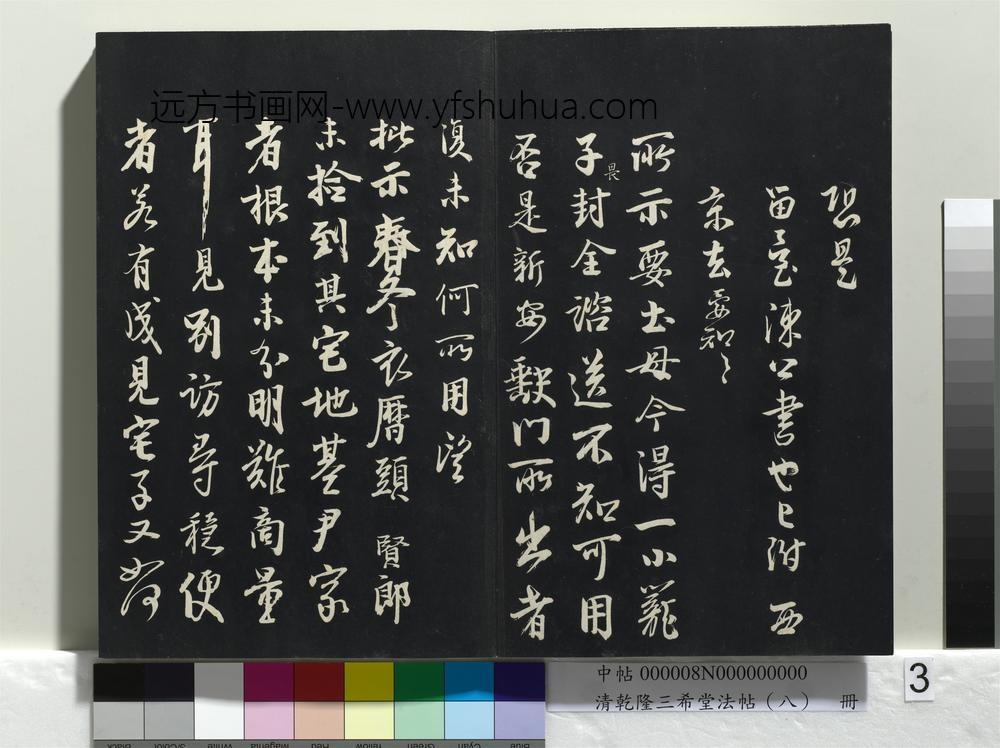 恐是
留臺陳公書也已附西
京去要知之
所示要土母今得一小籠
子封全諮送不知可用
畏
否是新安
門所出者
復未知何所用望
批示春冬衣曆頭賢郎
未拾到其宅地基尹家
者根本未分明難商量
耳見別訪尋穩便
者若有成見宅子又如何
远方书画网-www.yfshuhua.com
中帖 000008N000000000
清乾隆三希堂法帖（八） 冊
3
Black
3/Color
White
Magenta
Red
Yellow
Green
Cyan
Blue